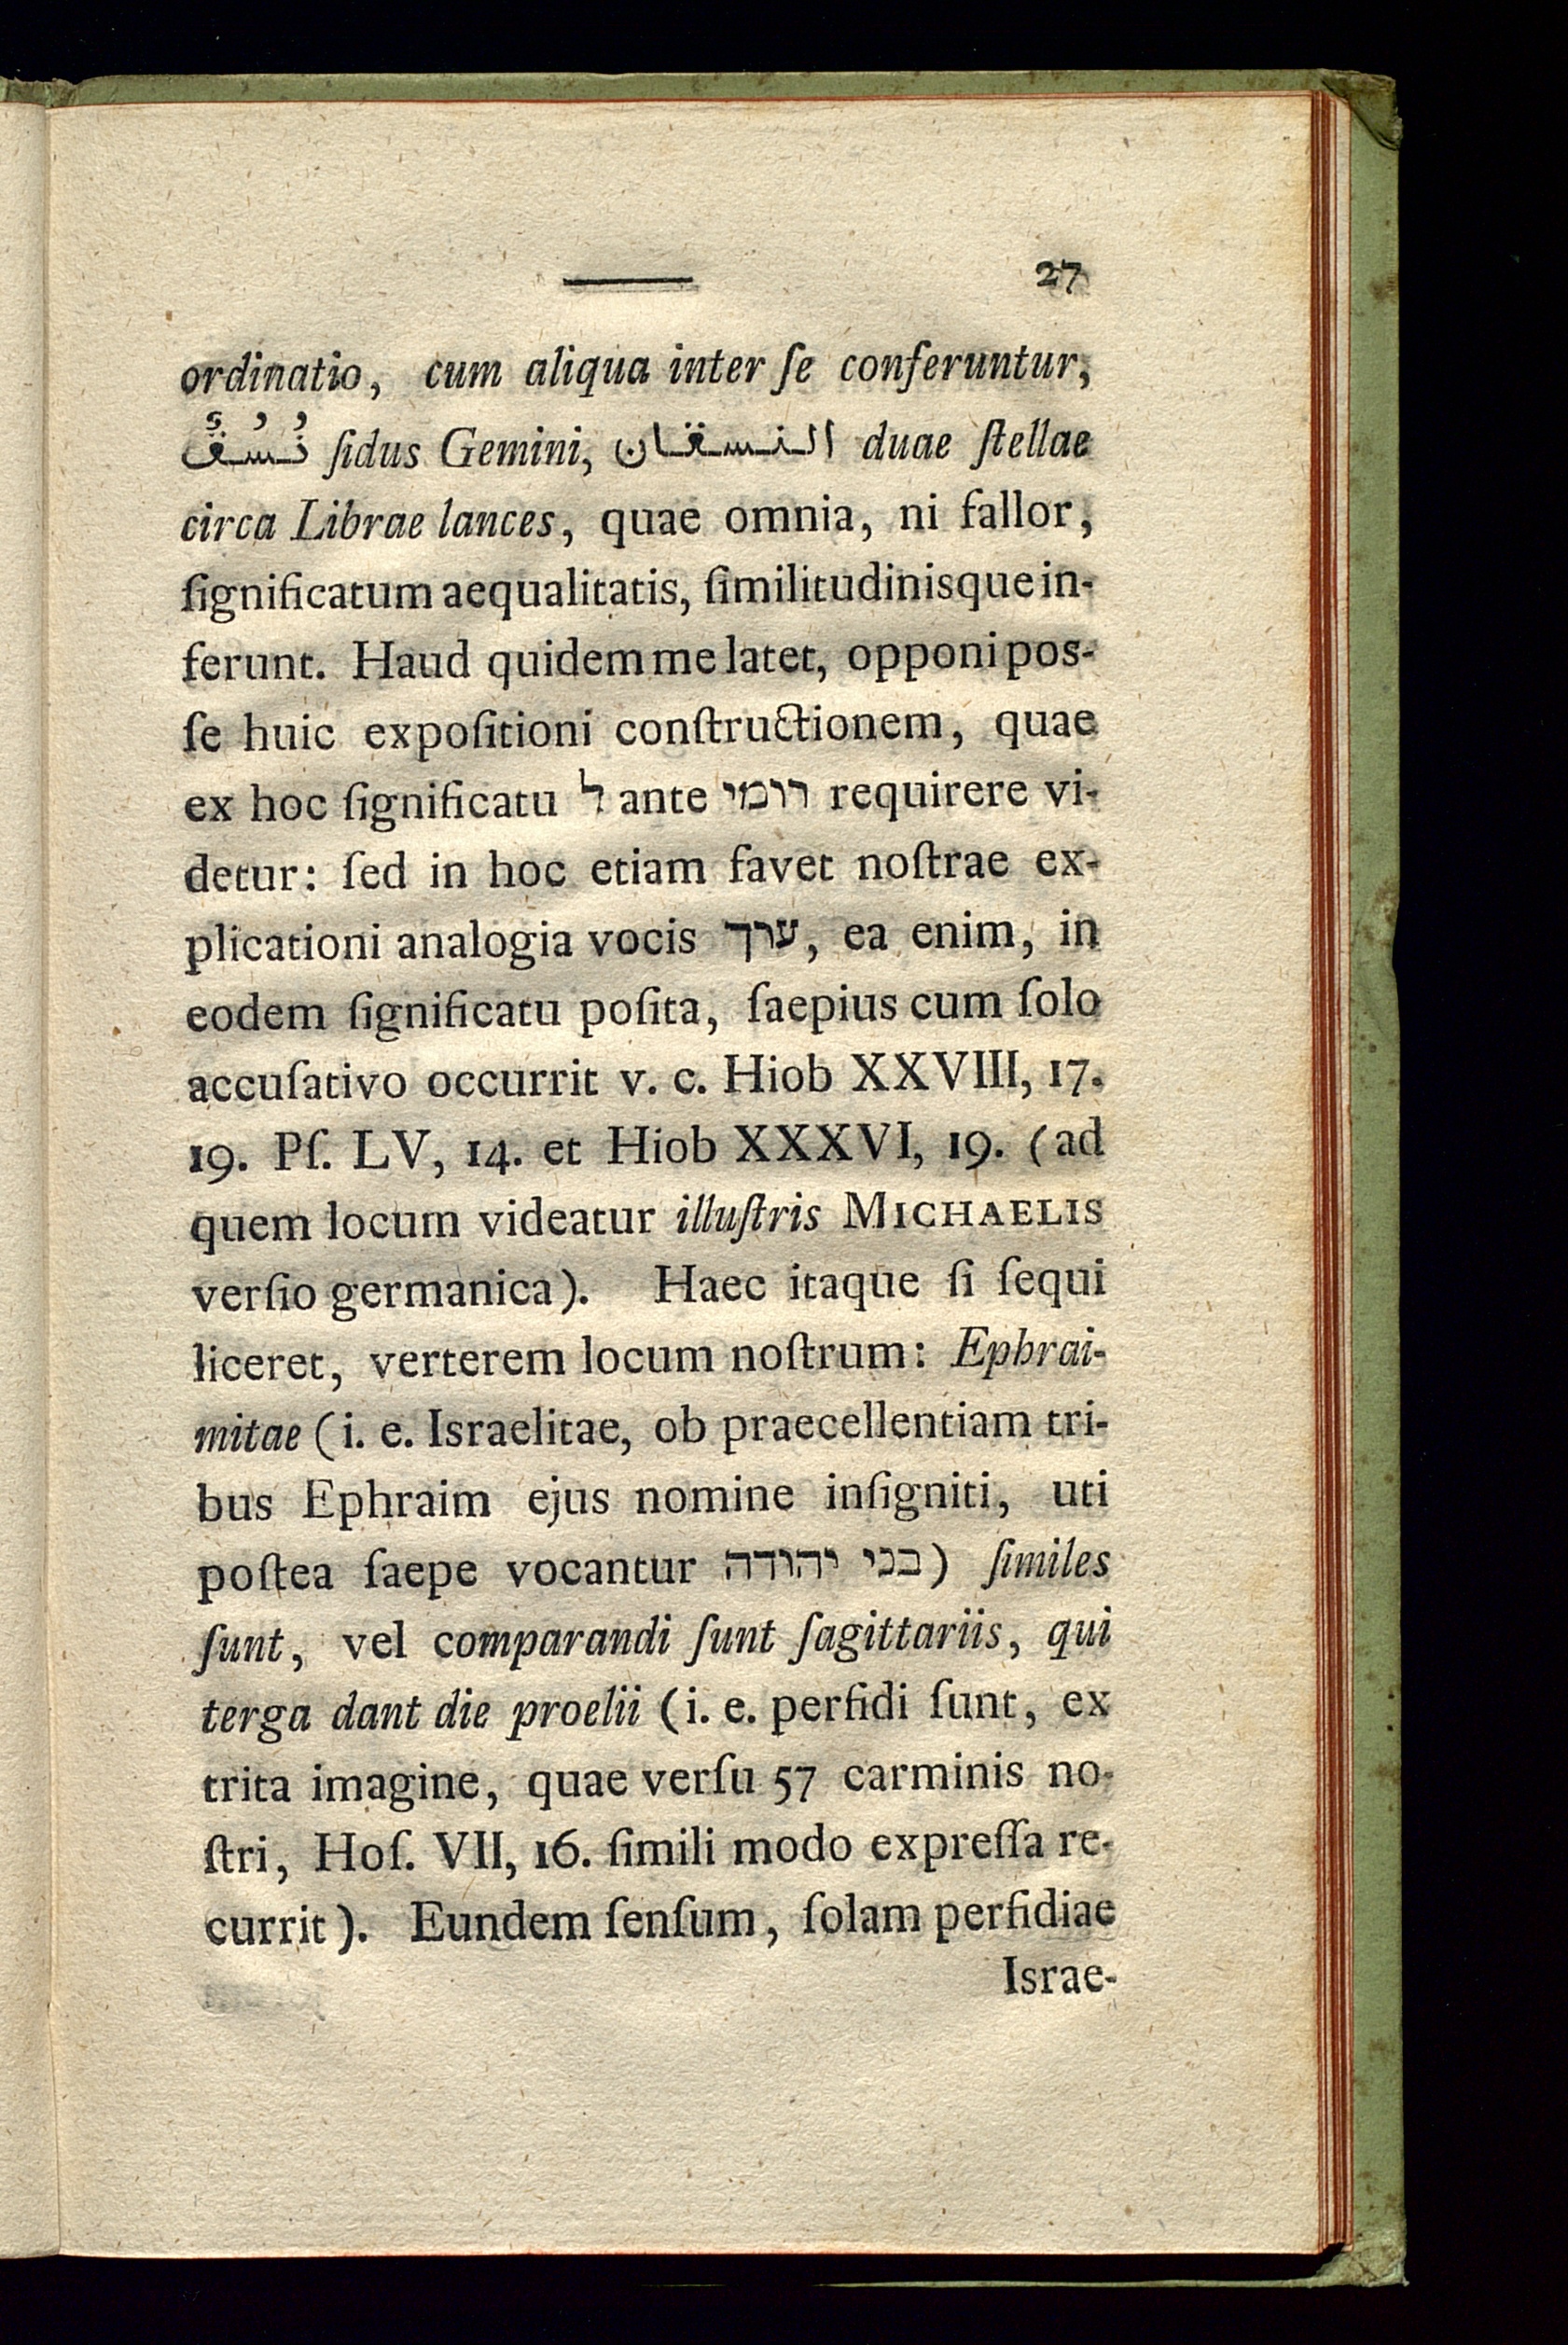 27
ordinatio, cum aliqua inter ſe conferuntur,
نُسُقٌ ſidus Gemini, النسقان duae ſtellae
circa Librae lances, quae omnia, ni fallor,
ſignificatum aequalitatis, ſimilitudinisque in-
ferunt. Haud quidem me latet, opponi pos-
ſe huic expoſitioni conſtructionem, quae
ex hoc ſignificatu ל ante רומי requirere vi-
detur: ſed in hoc etiam favet noſtrae ex-
plicationi analogia vocis ערך, ea enim, in
eodem ſignificatu poſita, ſaepius cum ſolo
accuſativo occurrit v. c. Hiob XXVIII, 17.
19. Pſ. LV, 14. et Hiob XXXVI, 19. (ad
quem locum videatur illuſtris MICHAELIS
verſio germanica). Haec itaque ſi ſequi
liceret, verterem locum noſtrum: Ephrai-
mitae (i. e. Israelitae, ob praecellentiam tri-
bus Ephraim ejus nomine inſigniti, uti
poſtea ſaepe vocantur בני יהודה) ſimiles
ſunt, vel comparandi ſunt ſagittariis, qui
terga dant die proelii (i. e. perfidi ſunt, ex
trita imagine, quae verſu 57 carminis no-
ſtri, Hoſ. VII, 16. ſimili modo expreſſa re-
currit). Eundem ſenſum, ſolam perfidiae
Israe-